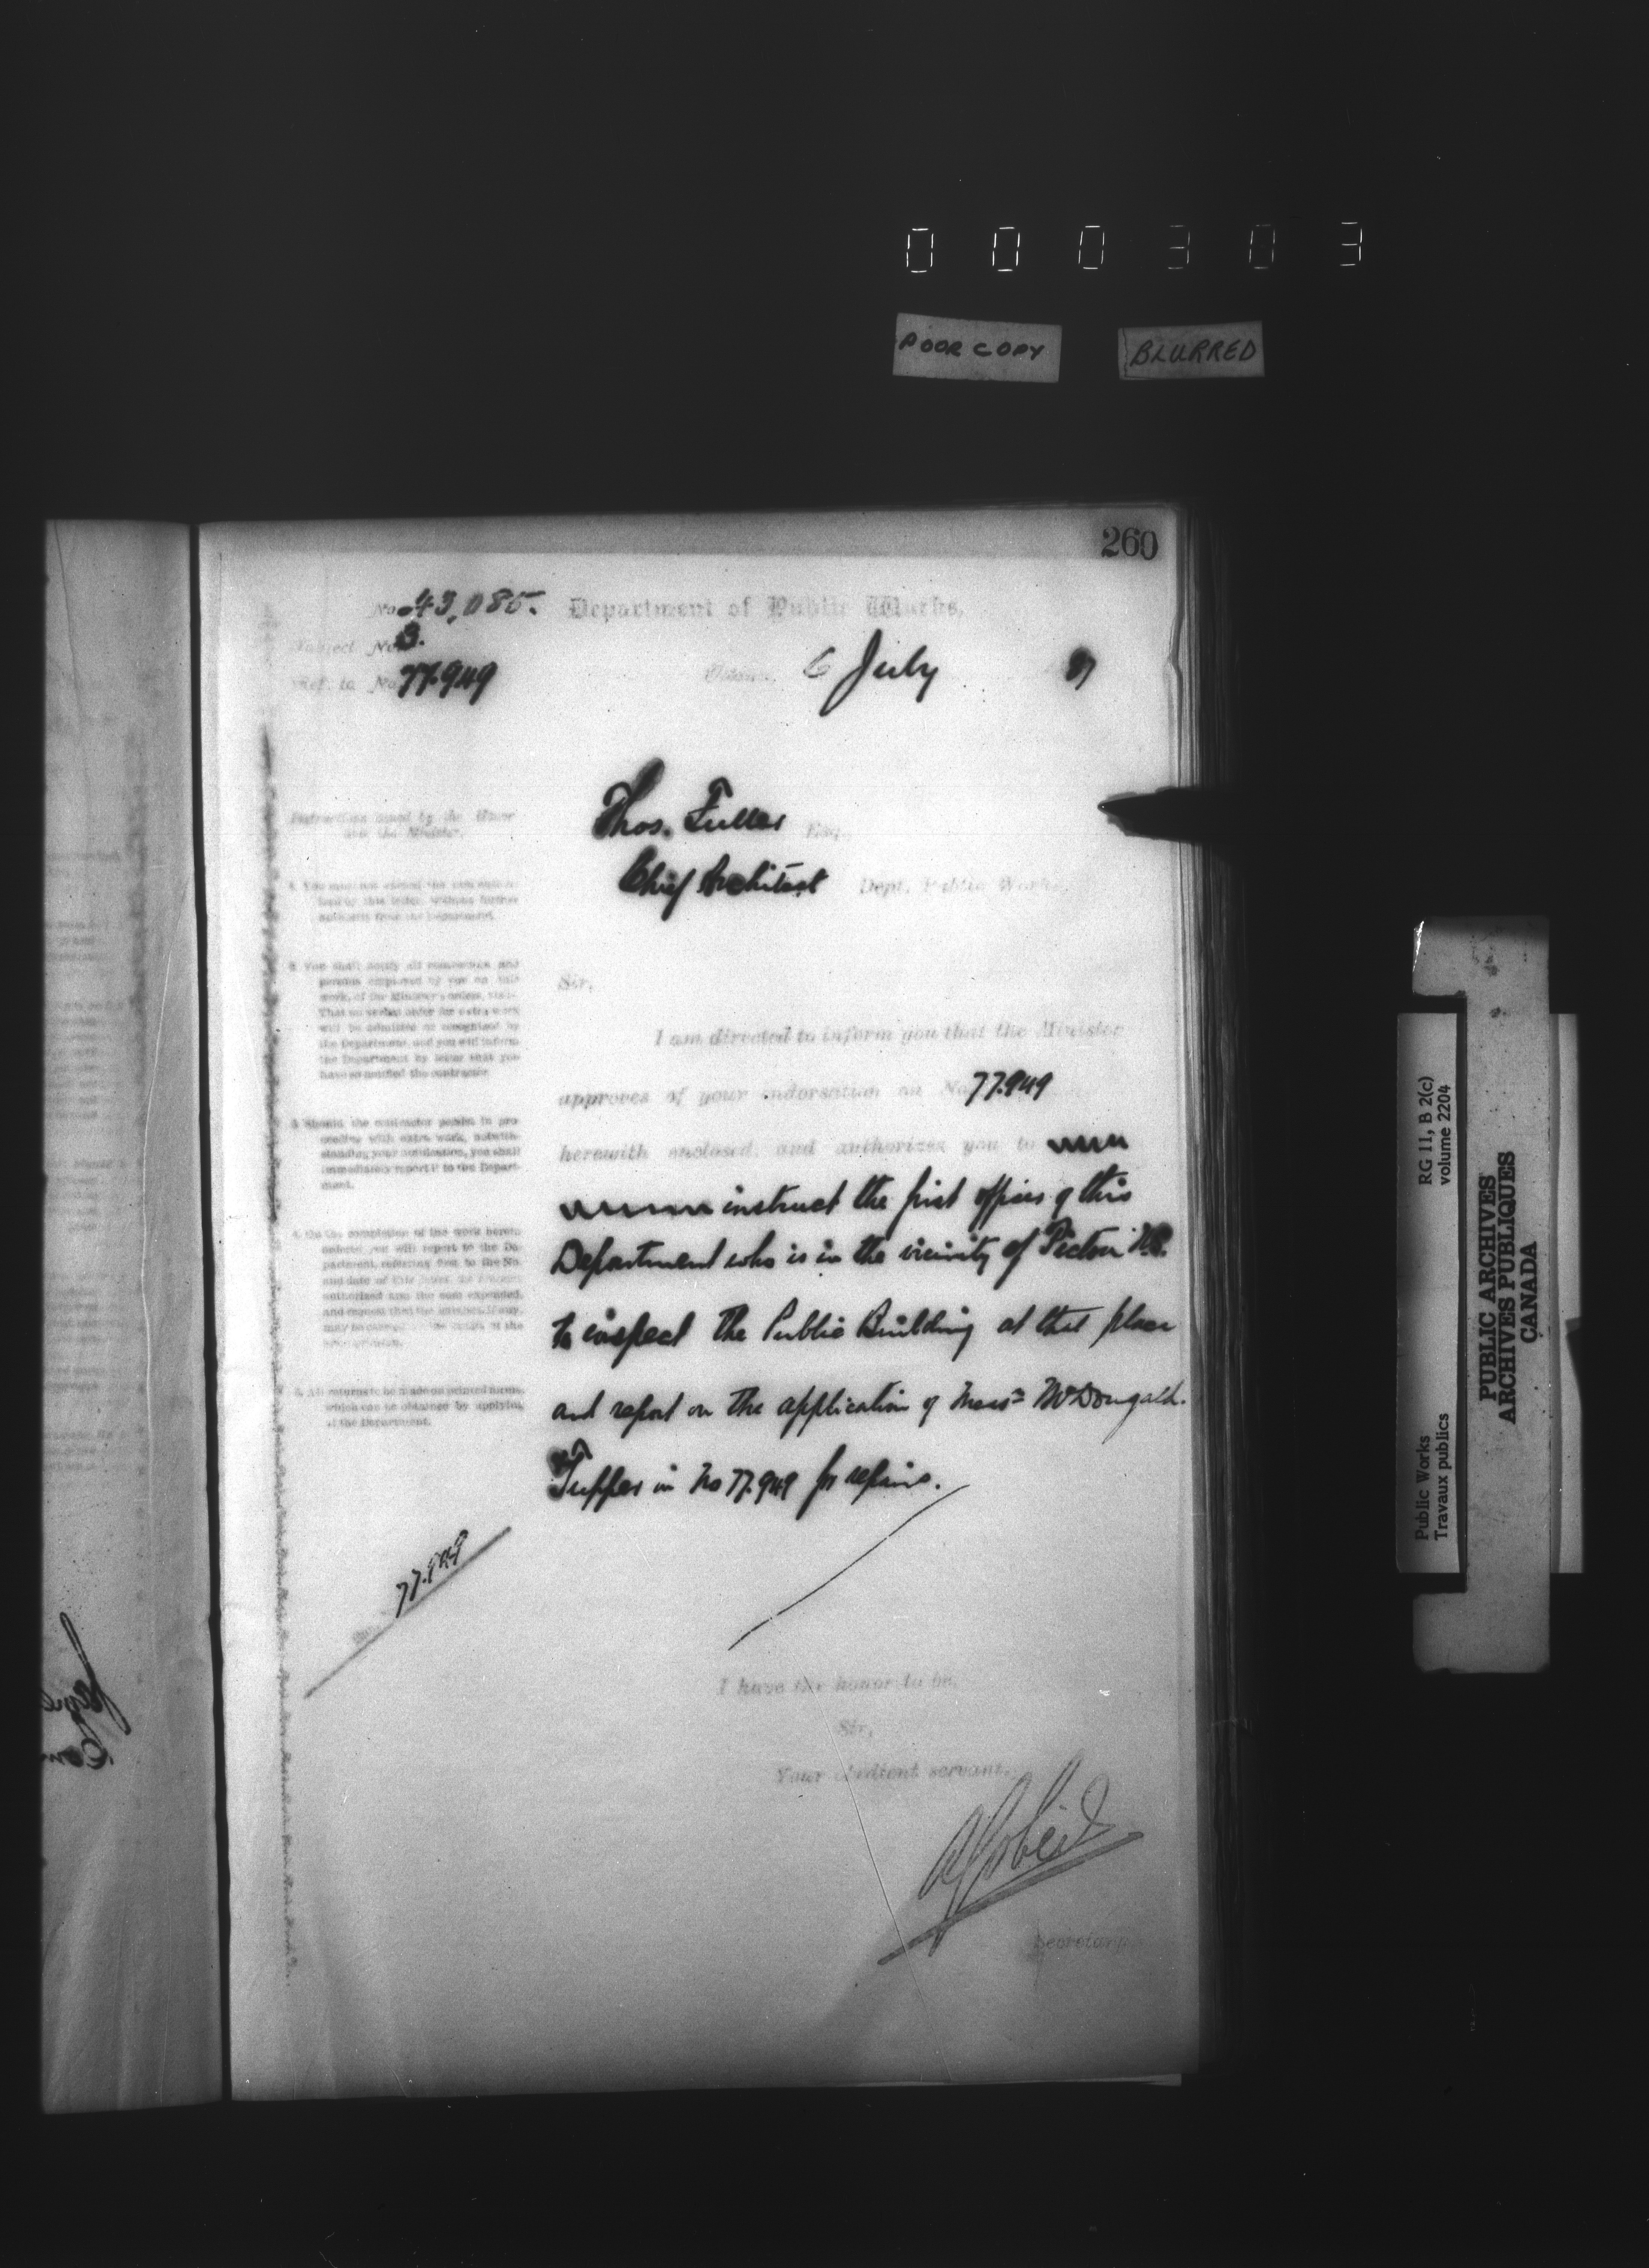 000303
POOR COPY
BLURRED
260
No 43,085. Department of Public Works,
Subject No 3.
Ref. to No 77.949
Ottawa, 6 July 87
Thos. Fuller Esq.
Chief Architect Dept. Public Works,
Instructions issued by the Honor
able the Minister.
1. You must not exceed the sum author-
ized by this letter, without further
authority from the Department.
2. You shall notify all contractors and
persons employed by you on this
work, of the Minister's orders, viz:-
That no verbal order for extra work
will be admitted or recognized by
the Department, and you will inform
the Department by letter that you
have so notified the contractor.
3. Should the contractor persist in pro-
ceeding with extra work, notwith-
standing your notification, you shall
immediately report it to the Depart-
ment.
4. On the completion of the work herein
ordered you will report to the De-
partment, referring first to the No.
and date of this letter, the amount
authorized and the sum expended,
and request that the
5. All returns to be made on printed forms,
which can be obtained by applying
at the Department.
Sir,
I am directed to inform you that the Minister
approves of your indorsation on No. 77.949
herewith enclosed, and authorizes you to
instruct the first officer of this
Department who is in the vicinity of Pictou N.S.
to inspect the Public Building at that place
and report on the application of Messrs McDougald.
Tupper in No 77.949 for repairs.
77.949
I have the honor to be,
Sir,
Your obedient servant,
A Gobeil
Secretary
Public Works
Travaux publics
RG 11, B 2(c)
volume 2204
PUBLIC ARCHIVES
ARCHIVES PUBLIQUES
CANADA